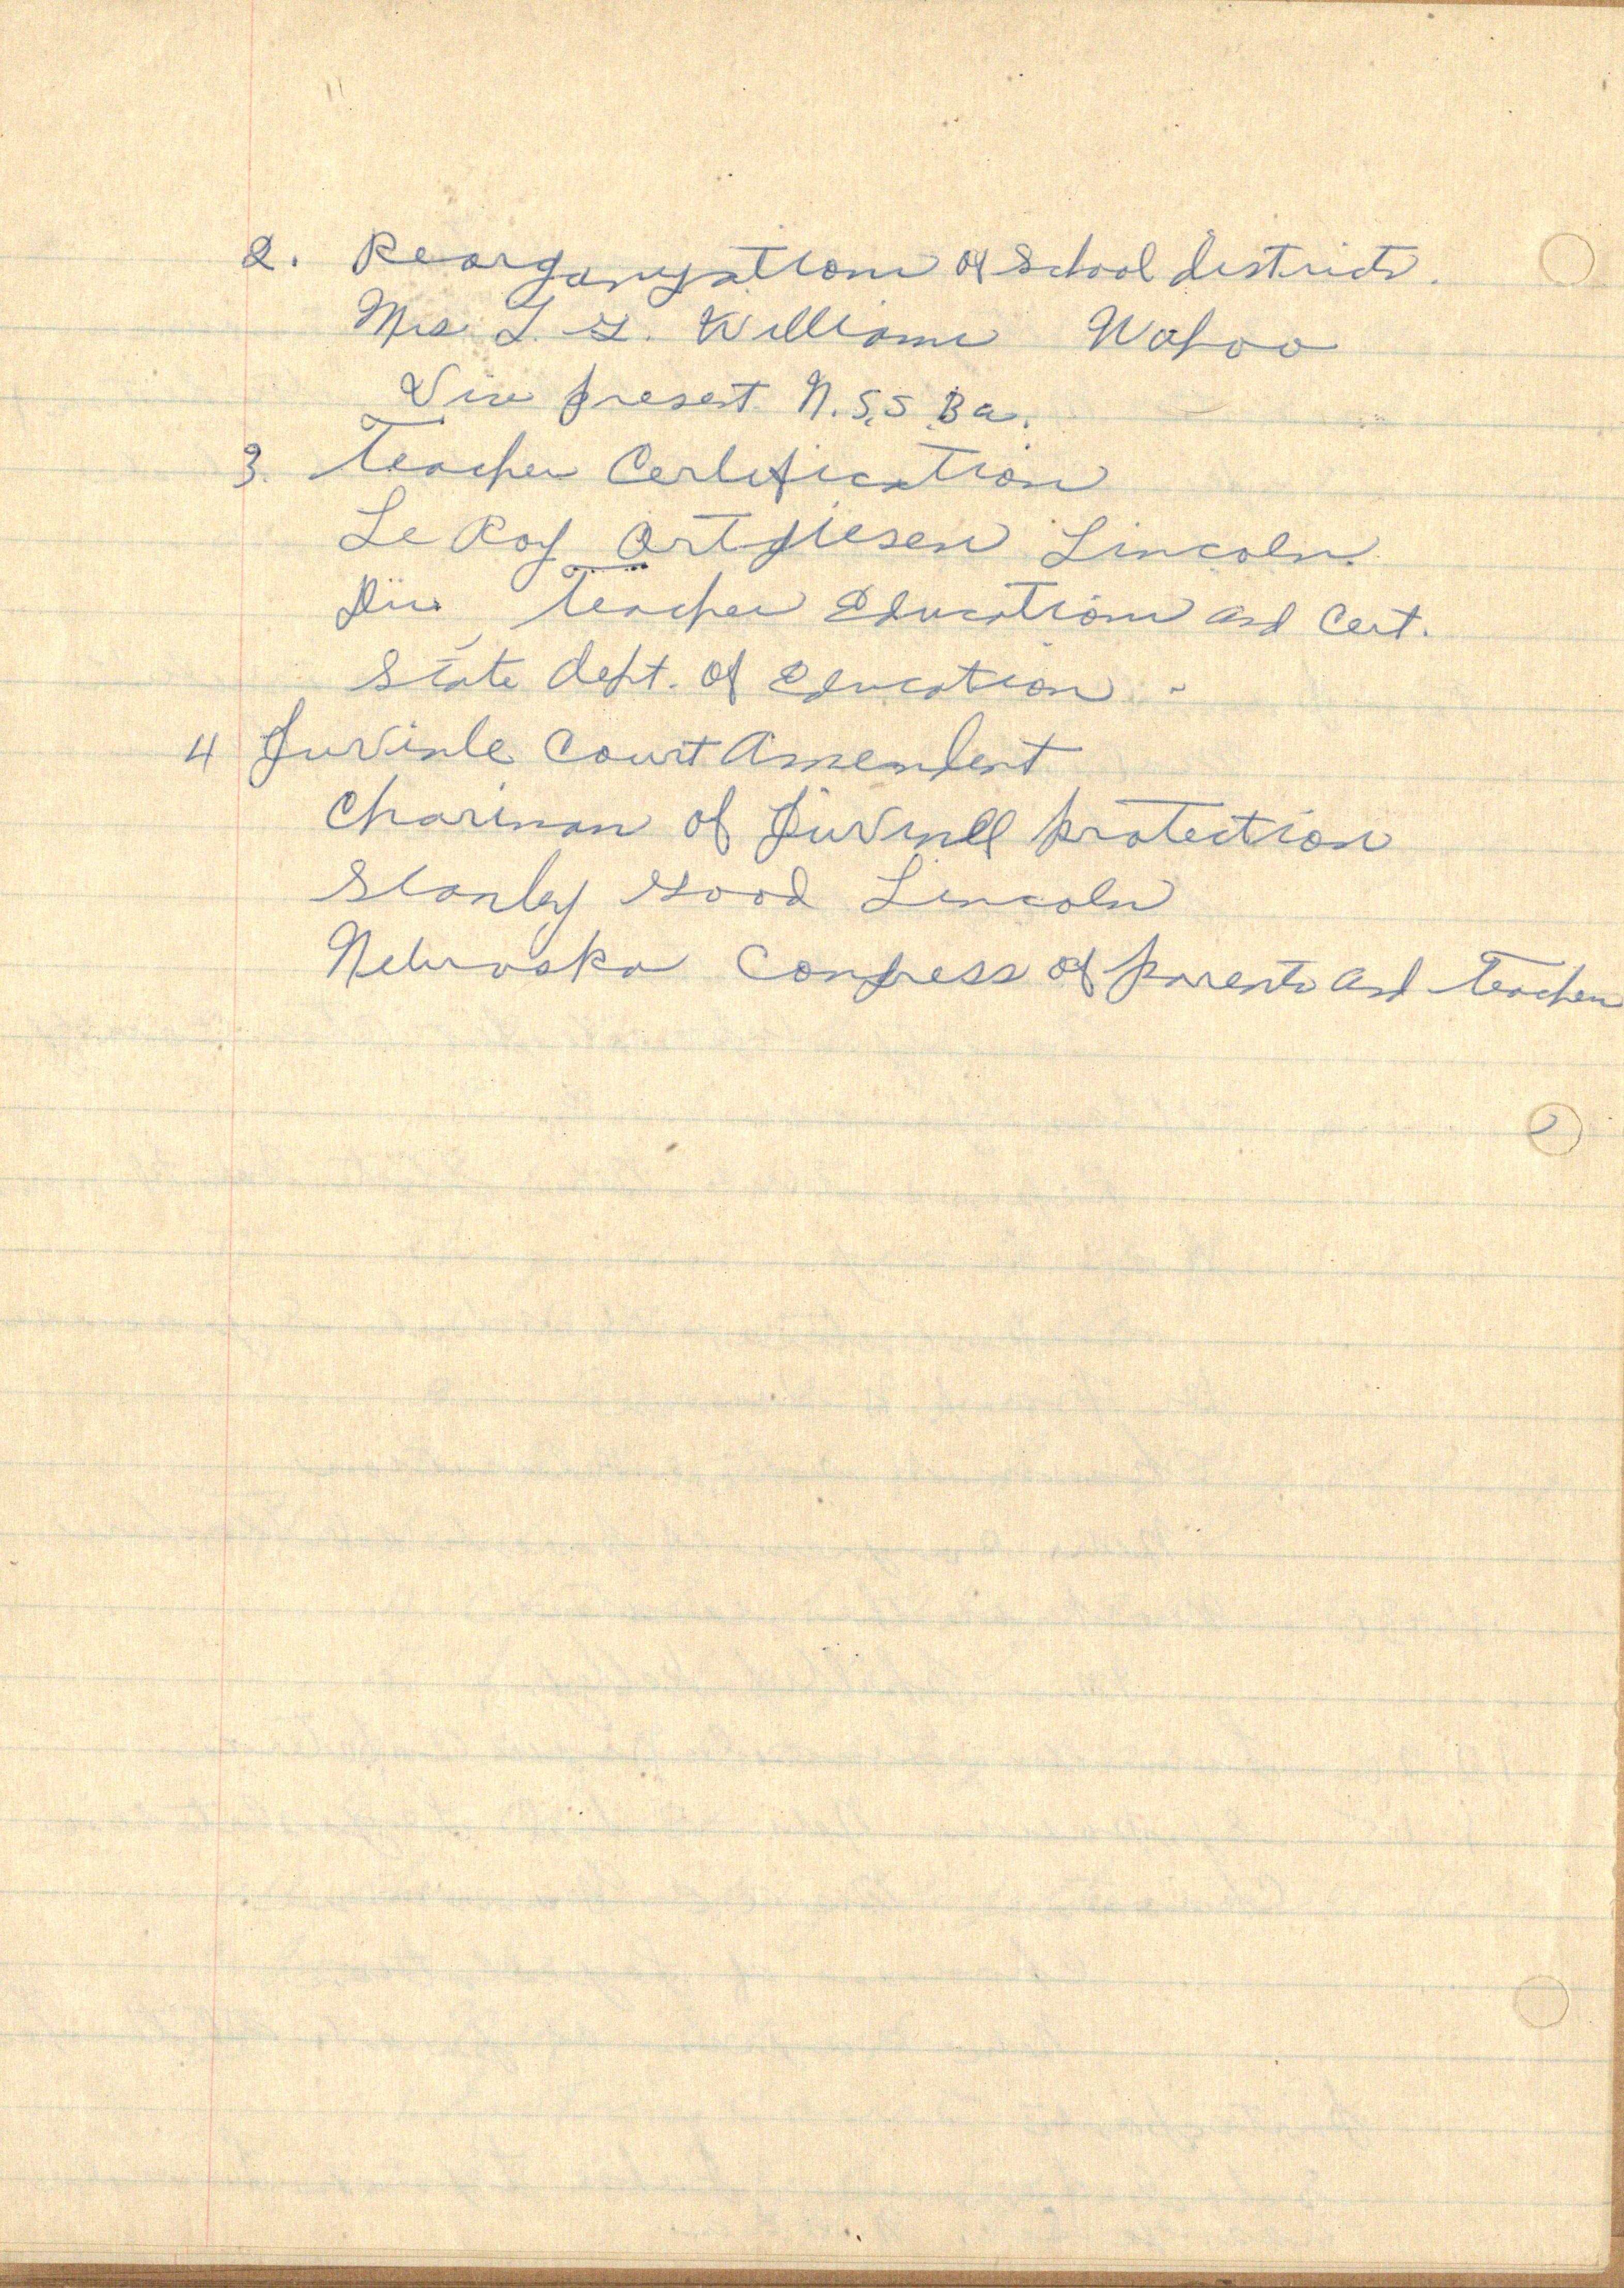 2. Reorganyation of School districts.
Mrs L. G. Williams Wahoo
Vice presest N.S.S.Ba.
3. Teacher Certification
Le Roy Ortgiesen Lincoln.
Div. Teacher Education and Cert.
State dept. of Education.
4 Juvinle Court Amendent
Chairman of Juvinell protection
Stanley Good Lincoln
Nebraska Congress of parents and teacher